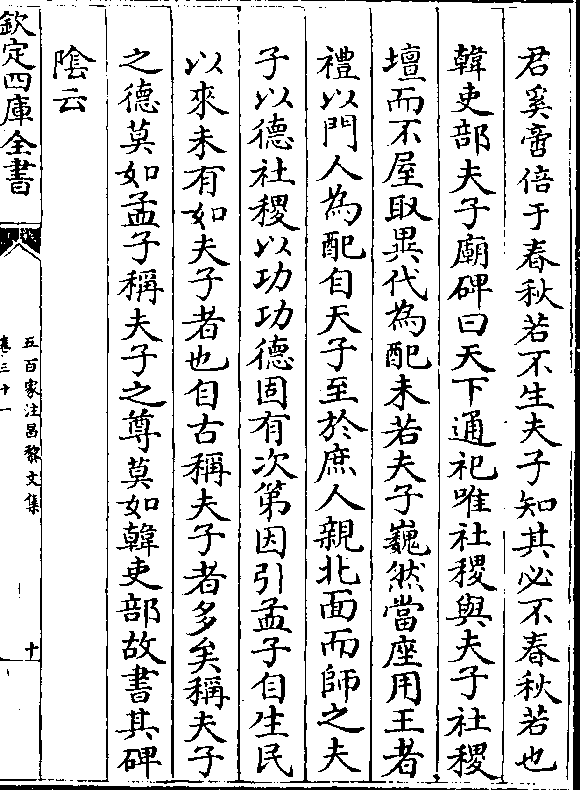 君奚啻倍于春秋若不生夫子知其必不春秋若也
韓吏部夫子廟碑曰天下通祀唯社稷與夫子社稷
壇而不屋取異代為配未若夫子巍然當座用王者
禮以門人為配自天子至於庶人親北面而師之夫
子以德社稷以功功德固有次第因引孟子自生民
以來未有如夫子者也自古稱夫子者多矣稱夫子
之德莫如孟子稱夫子之尊莫如韓吏部故書其碑
陰云
欽定四庫全書
五百家注昌黎文集
卷三十一
十